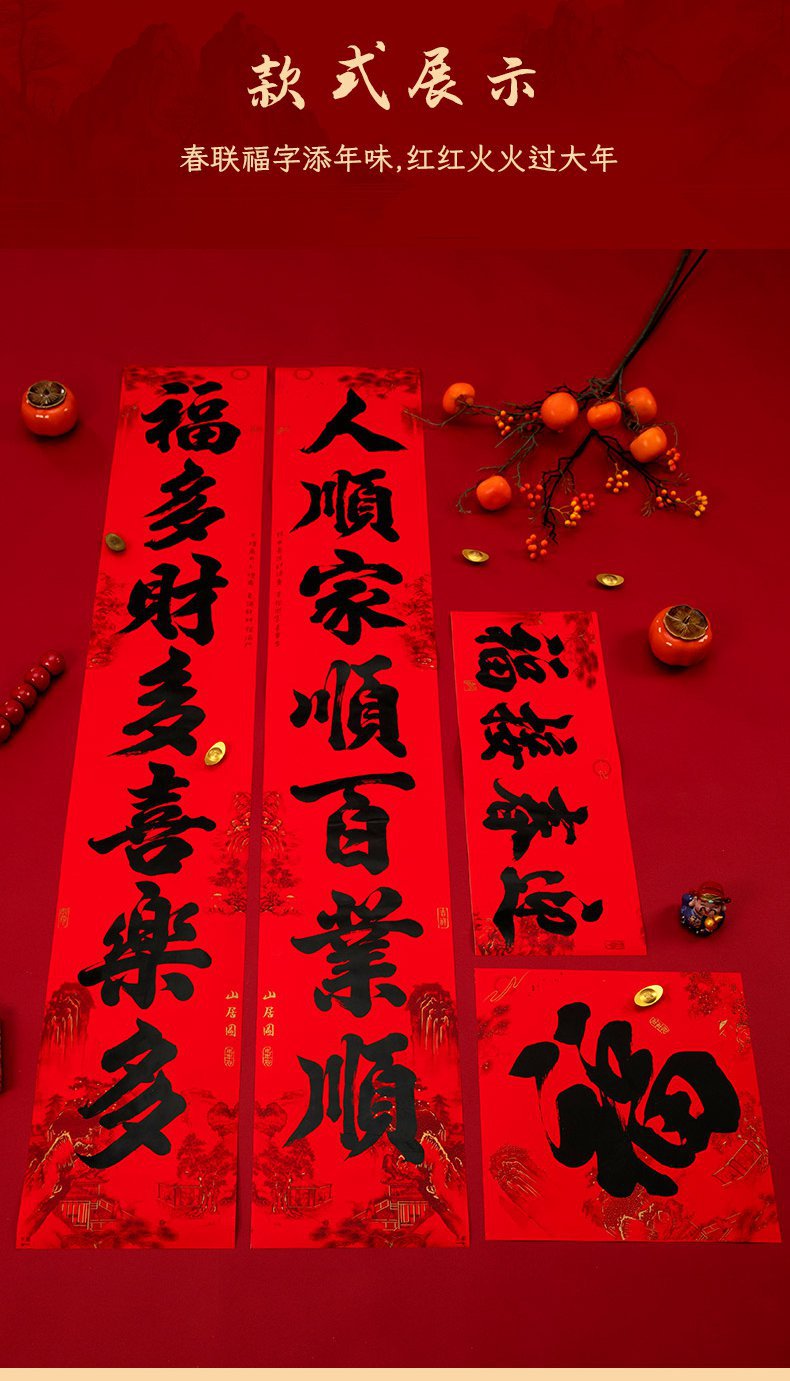 款式展示
春联福字添年味,红红火火过大年
人順家順百業順
福多財多喜樂多
山居圖
山居圖
迎春接福
福